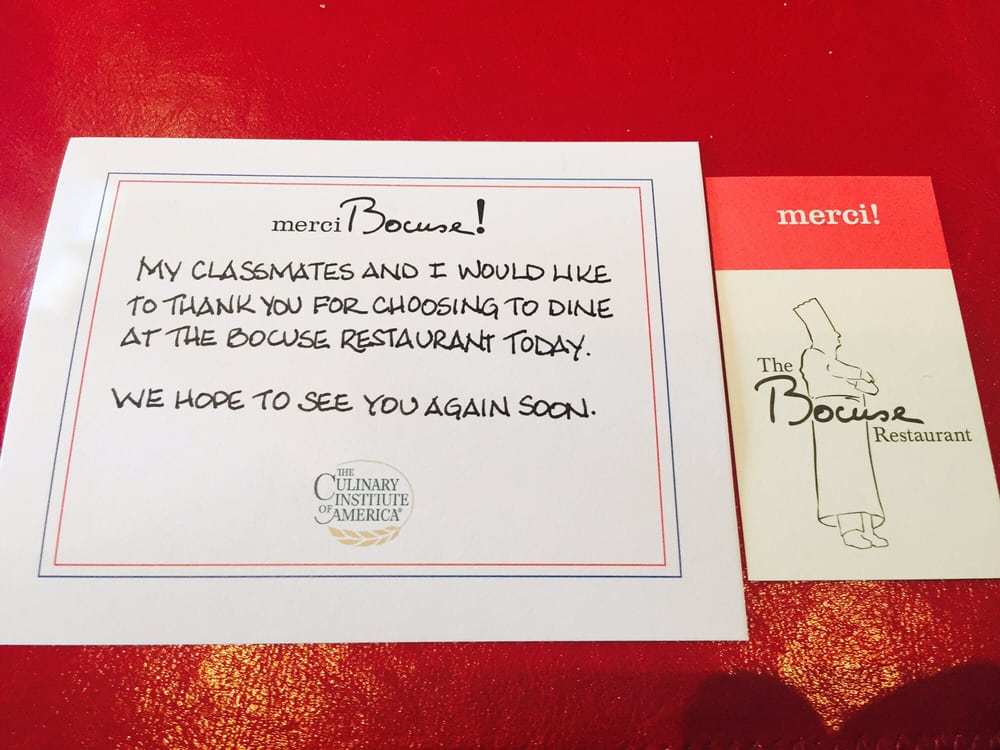 merci Bocuse!
MY CLASSMATES AND I WOULD LIKE
TO THANK YOU FOR CHOOSING TO DINE
AT THE BOCUSE RESTAURANT TODAY.
WE HOPE TO SEE YOU AGAIN SOON.
THE
CULINARY
INSTITUTE
OF AMERICA®
merci!
The
Bocuse
Restaurant